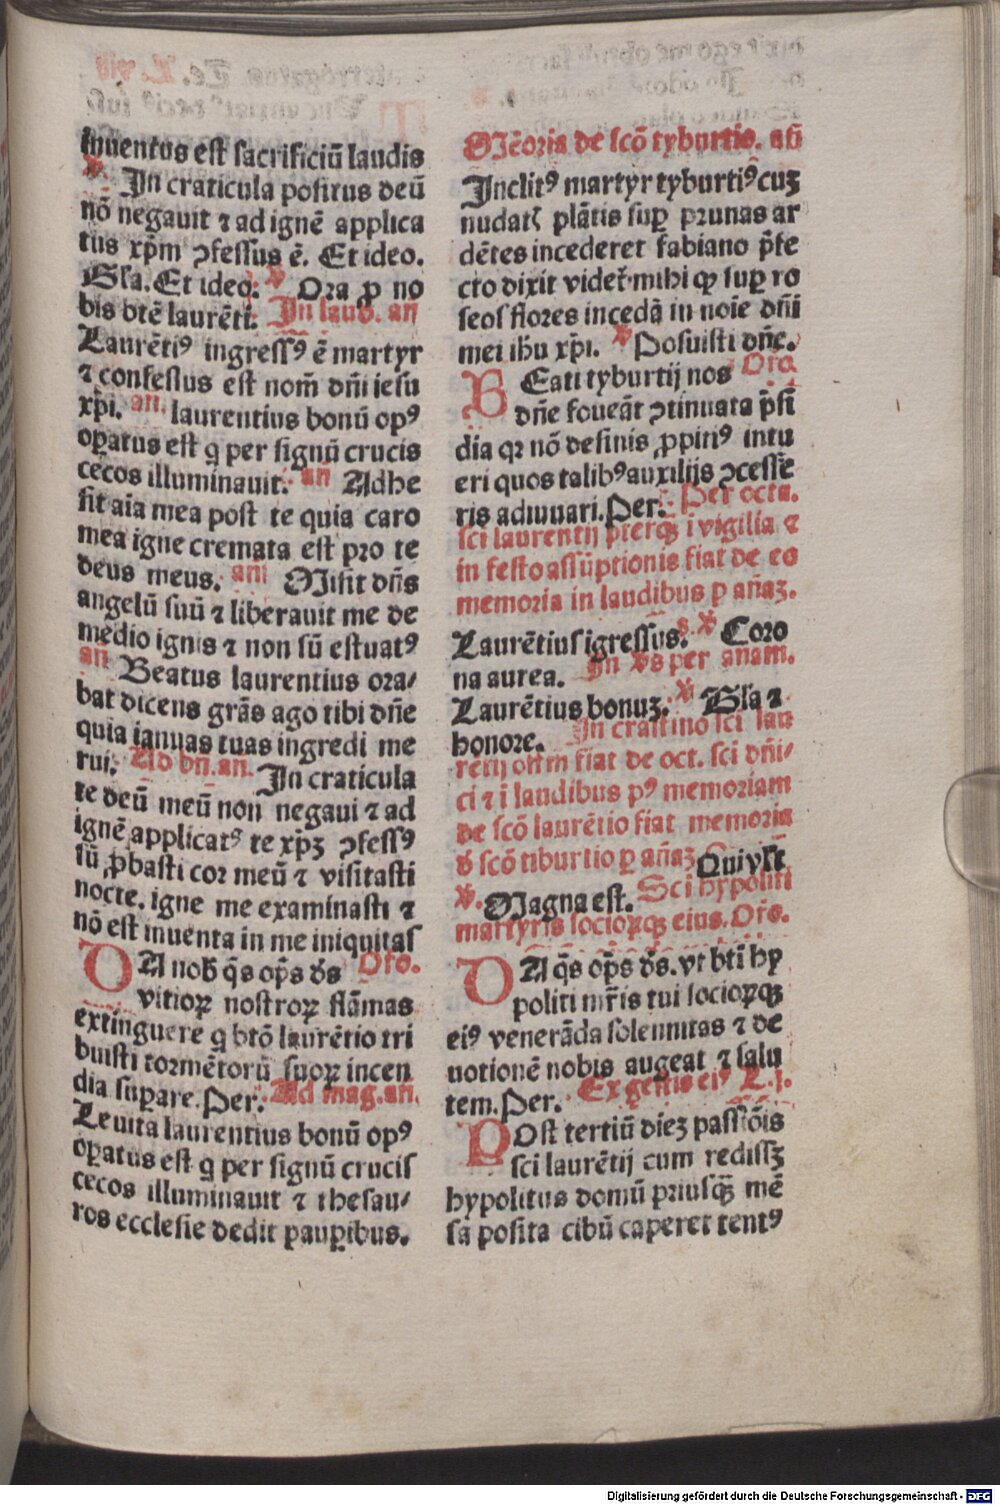 inuentus est sacrificiū laudis
℣. In craticula positus deū
nō negauit ⁊ ad ignē applica
tus xp̄m ꝯfessus ē. Et ideo.
Gl̄a. Et ideo. ℣ Ora ꝓ no
bis btē laurēti. In laud. an̄
Laurētiꝰ ingressꝰ ē martyr
⁊ confessus est nom̄ dn̄i iesu
xp̄i. an̄. laurentius bonū opꝰ
oꝑatus est q per signū crucis
cecos illuminauit. an̄ Adhe
sit aīa mea post te quia caro
mea igne cremata est pro te
deus meus. an̄ Misit dn̄s
angelū suū ⁊ liberauit me de
medio ignis ⁊ non sū estuatꝰ
an̄ Beatus laurentius ora/
bat dicens grās ago tibi dn̄e
quia ianuas tuas ingredi me
rui. Ad bn̄. an̄. In craticula
te deū meū non negaui ⁊ ad
ignē applicatꝰ te xp̄ꝫ ꝯfessꝰ
sū ꝓbasti cor meū ⁊ visitasti
nocte. igne me examinasti ⁊
nō est inuenta in me iniquitas
DA nob̄ q̄s op̄s ds̄ Oro.
vitioꝝ nostroꝝ flāmas
extinguere q btō laurētio tri
buisti tormētorū suoꝝ incen
dia suꝑare. Per. Ad mag. an̄.
Leuita laurentius bonū opꝰ
oꝑatus est q per signū crucis
cecos illuminauit ⁊ thesau/
ros ecclesie dedit pauꝑibus.
Mēoria de scō tyburtio. an̄
Inclitꝰ martyr tyburtiꝰ cuꝫ
nudatꝭ plātis suꝑ prunas ar
dētes incederet fabiano p̄fe
cto dixit videt᷑ mihi ꝙ suꝑ ro
seos flores incedā in noīe dn̄i
mei ih̄u xp̄i. ℣ Posuisti dn̄e.
BEati tyburtij nos Oro.
dn̄e foueāt ꝯtinuata p̄si
dia qꝛ nō desinis ꝓpitiꝰ intu
eri quos talibꝰ auxilijs ꝯcesse
ris adiuuari. Per. Per octa.
sci laurentij pterqꝫ i vigilia ⁊
in festo assūptionis fiat de eo
memoria in laudibus ꝑ an̄aꝫ.
Laurētius igressus. s. ℣ Coro
na aurea. In vs̄ per anam.
Laurētius bonuꝫ. ℣ Gl̄a ⁊
honore. In crastino sci lau
rētij offm fiat de oct. sci dn̄i/
ci ⁊ i laudibus pꝰ memoriam
de scō laurētio fiat memoria
d̄ scō tiburtio ꝑ an̄aꝫ Qui vlt
℣. Magna est. Sci hypoliti
martyris socioꝝqꝫ eius. Oro.
DA q̄s op̄s ds̄. vt bti hy
politi mr̄is tui socioꝝqꝫ
eiꝰ venerāda solennitas ⁊ de
uotionē nobis augeat ⁊ salu
tem. Per. Ex gestis eiꝰ L. j.
POst tertiū dieꝫ passiōis
sci laurētij cum redissꝫ
hypolitus domū priusqꝫ mē
sa posita cibū caperet tentꝰ
Digitalisierung gefördert durch die Deutsche Forschungsgemeinschaft - DFG